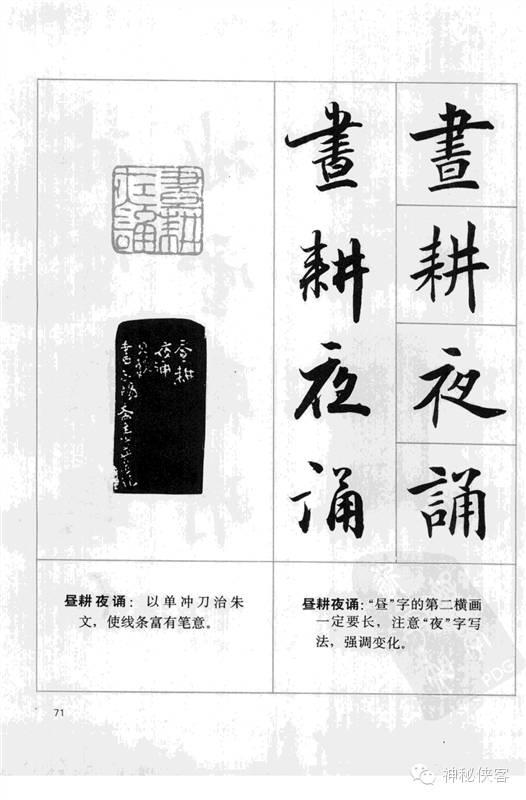 晝耕夜誦
晝耕夜诵
晝耕夜誦
昼耕
夜诵
昼耕夜诵：以单冲刀治朱
文，使线条富有笔意。
昼耕夜诵：“昼”字的第二横画
一定要长，注意“夜”字写
法，强调变化。
71
神秘侠客